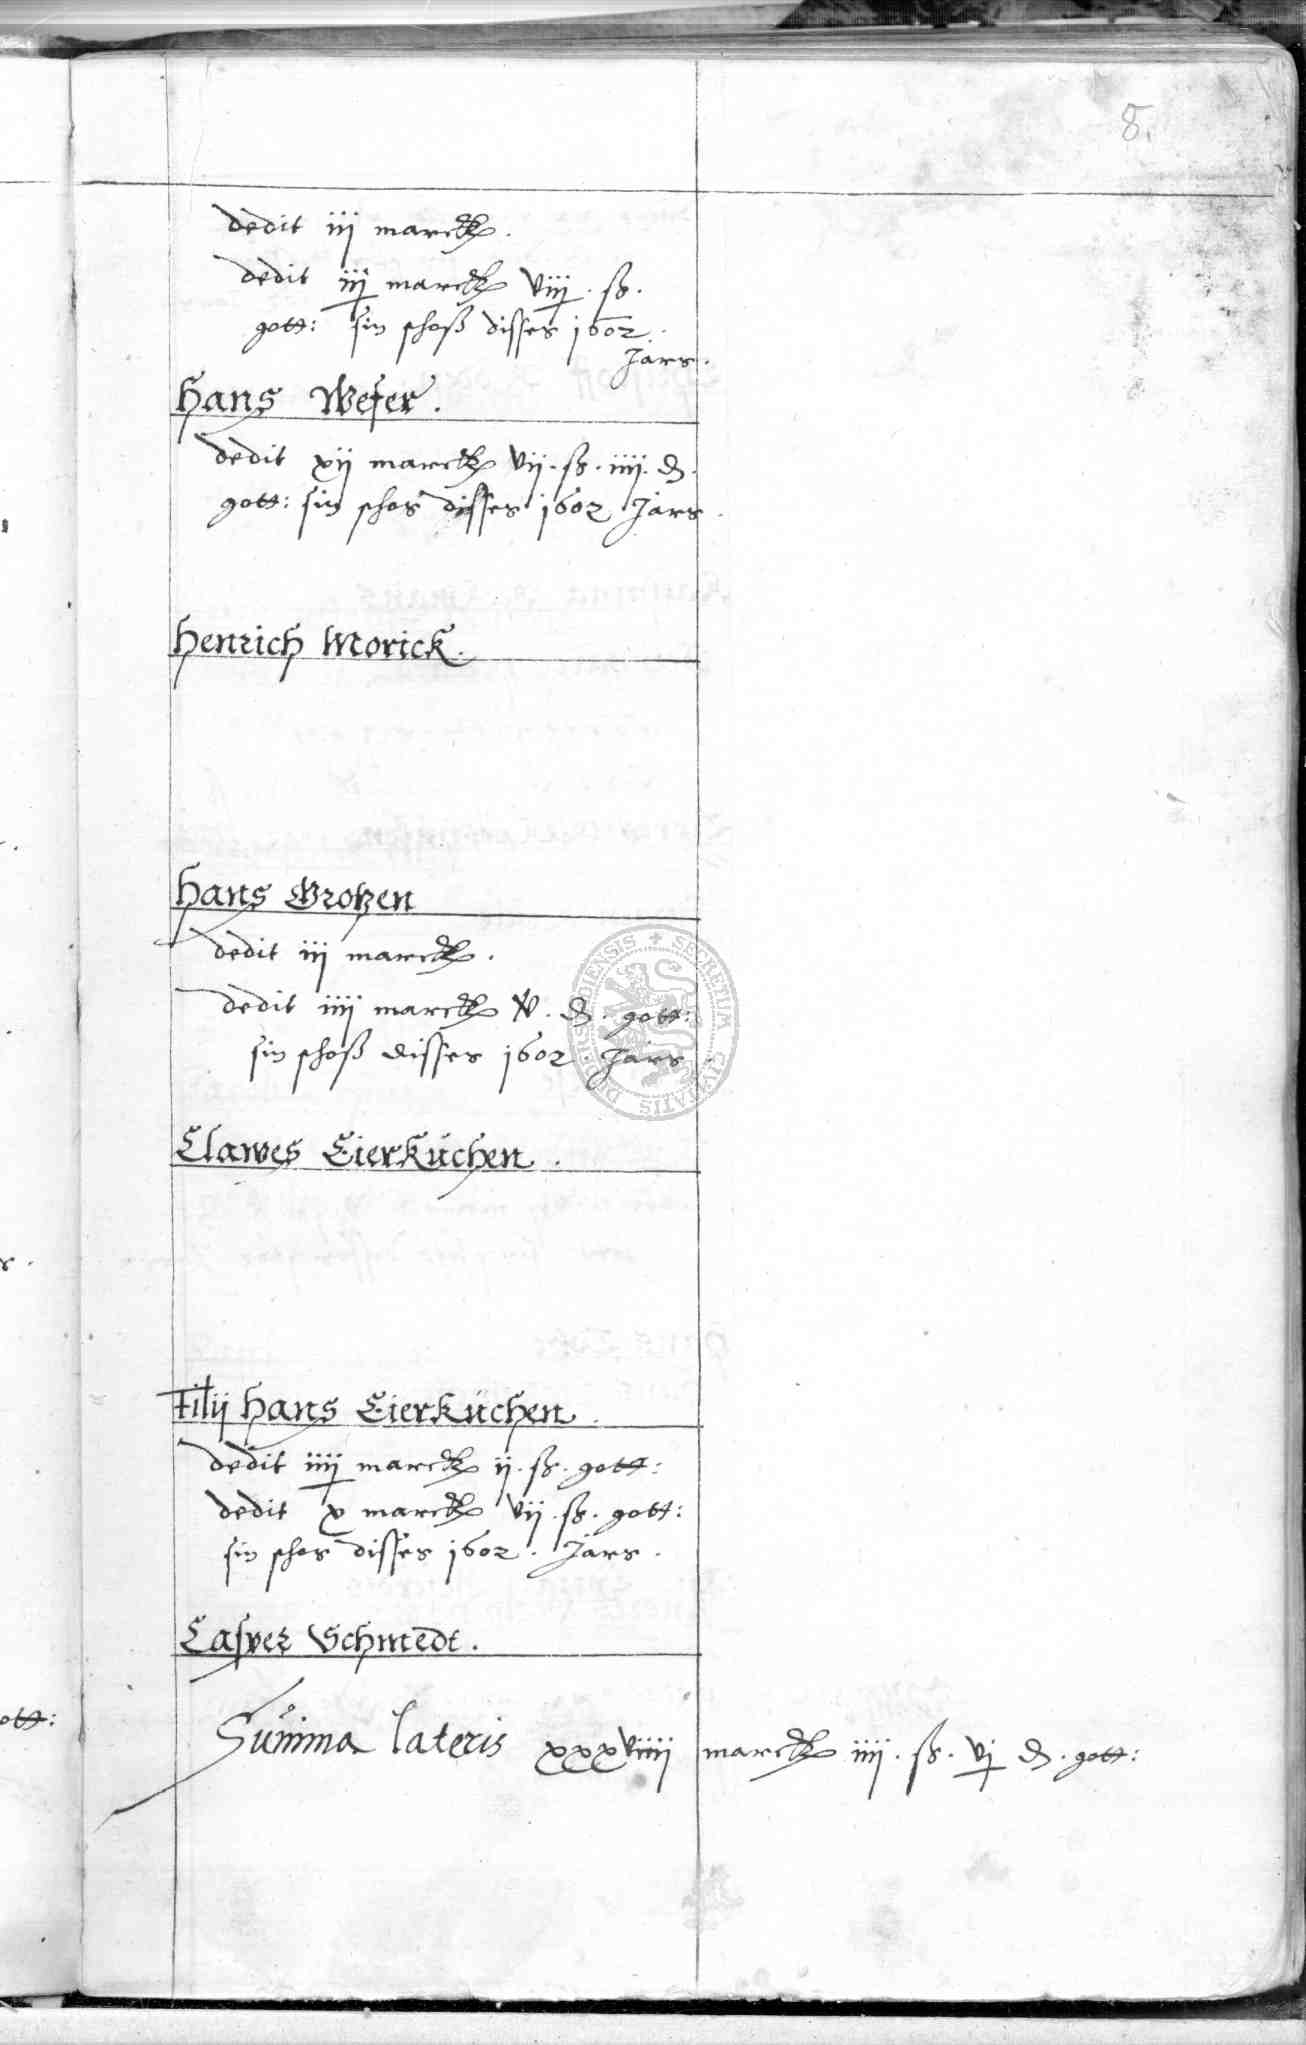 8.
dedit iij marck.
dedit iiij marck viiij. ß.
gott: sin schoß disses 1602.
Jars.
Hans Weser.
dedit xij marck vij. ß. iiij. d.
gott: sin schos disses 1602 Jars.
Henrich Morick.
Hans Grotzen
dedit iij marck.
dedit iiij marck v. d. gott:
sin schoß disses 1602 Jars.
Clawes Eierkuchen.
Filij Hans Eierkuchen.
dedit iiij marck ij. ß. gott:
dedit x marck vij. ß. gott:
sin schos disses 1602. Jars.
Casper Schmedt.
Summa lateris xxxviiij marck iiij. ß. vj d. gott:
SECRETUM CIVITATIS DUDERSTADIENSIS